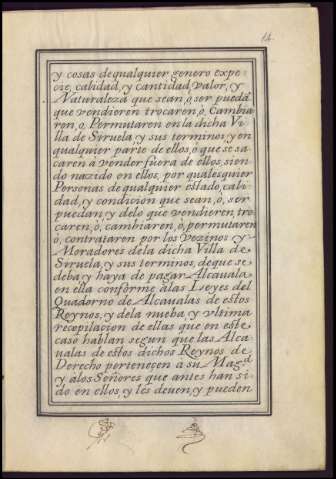 14
y cosas de qualquier genero expe
cie, calidad, y cantidad, valor, y
Naturaleza que sean, o, ser puedã
que vendieren trocaren, o, Cambia
ren, o, Permutaren en la dicha Vi
lla de Siruela, y sus terminos, y en
qualquier parte de ellos, o que se sa
caren a vender fuera de ellos, sien
do nazido en ellos, por qualesquier
Personas de qualquier estado, cali
dad, y condicion que sean, o, ser
puedan, y delo que vendieren, tro
caren, o, cambiaren, o, permutaren
o, contrataren por los Vezinos y
Moradores dela dicha Villa de
Siruela, y sus terminos, de que se
deba y haya de pagar Alcauala
en ella conforme alas Leyes del
Quaderno de Alcaualas de estos
Reynos, y dela nueba, y vltima
recopilacion de ellas que en este
caso hablan segun que las Alca
ualas de estos dichos Reynos de
Derecho perteneçen a su Mag.d
y alos Señores que antes han si
do en ellos, y les deuen, y pueden